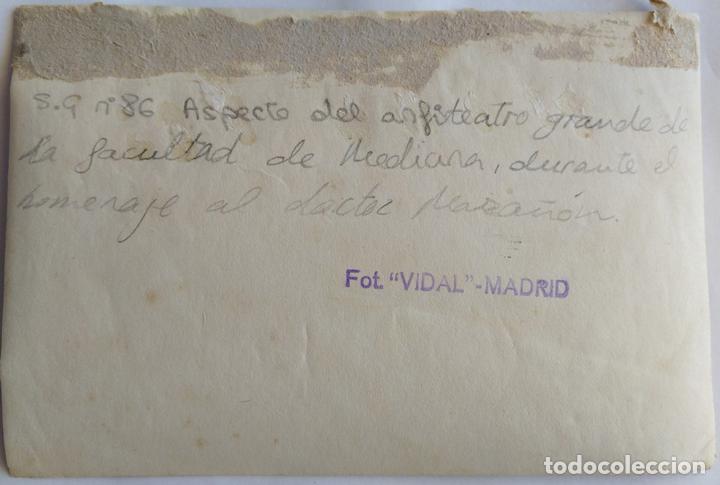 S.G nº 86 Aspecto del anfiteatro grande de
la facultad de Medicina, durante el
homenaje al doctor Marañón.
Fot. "VIDAL"-MADRID
todocoleccion